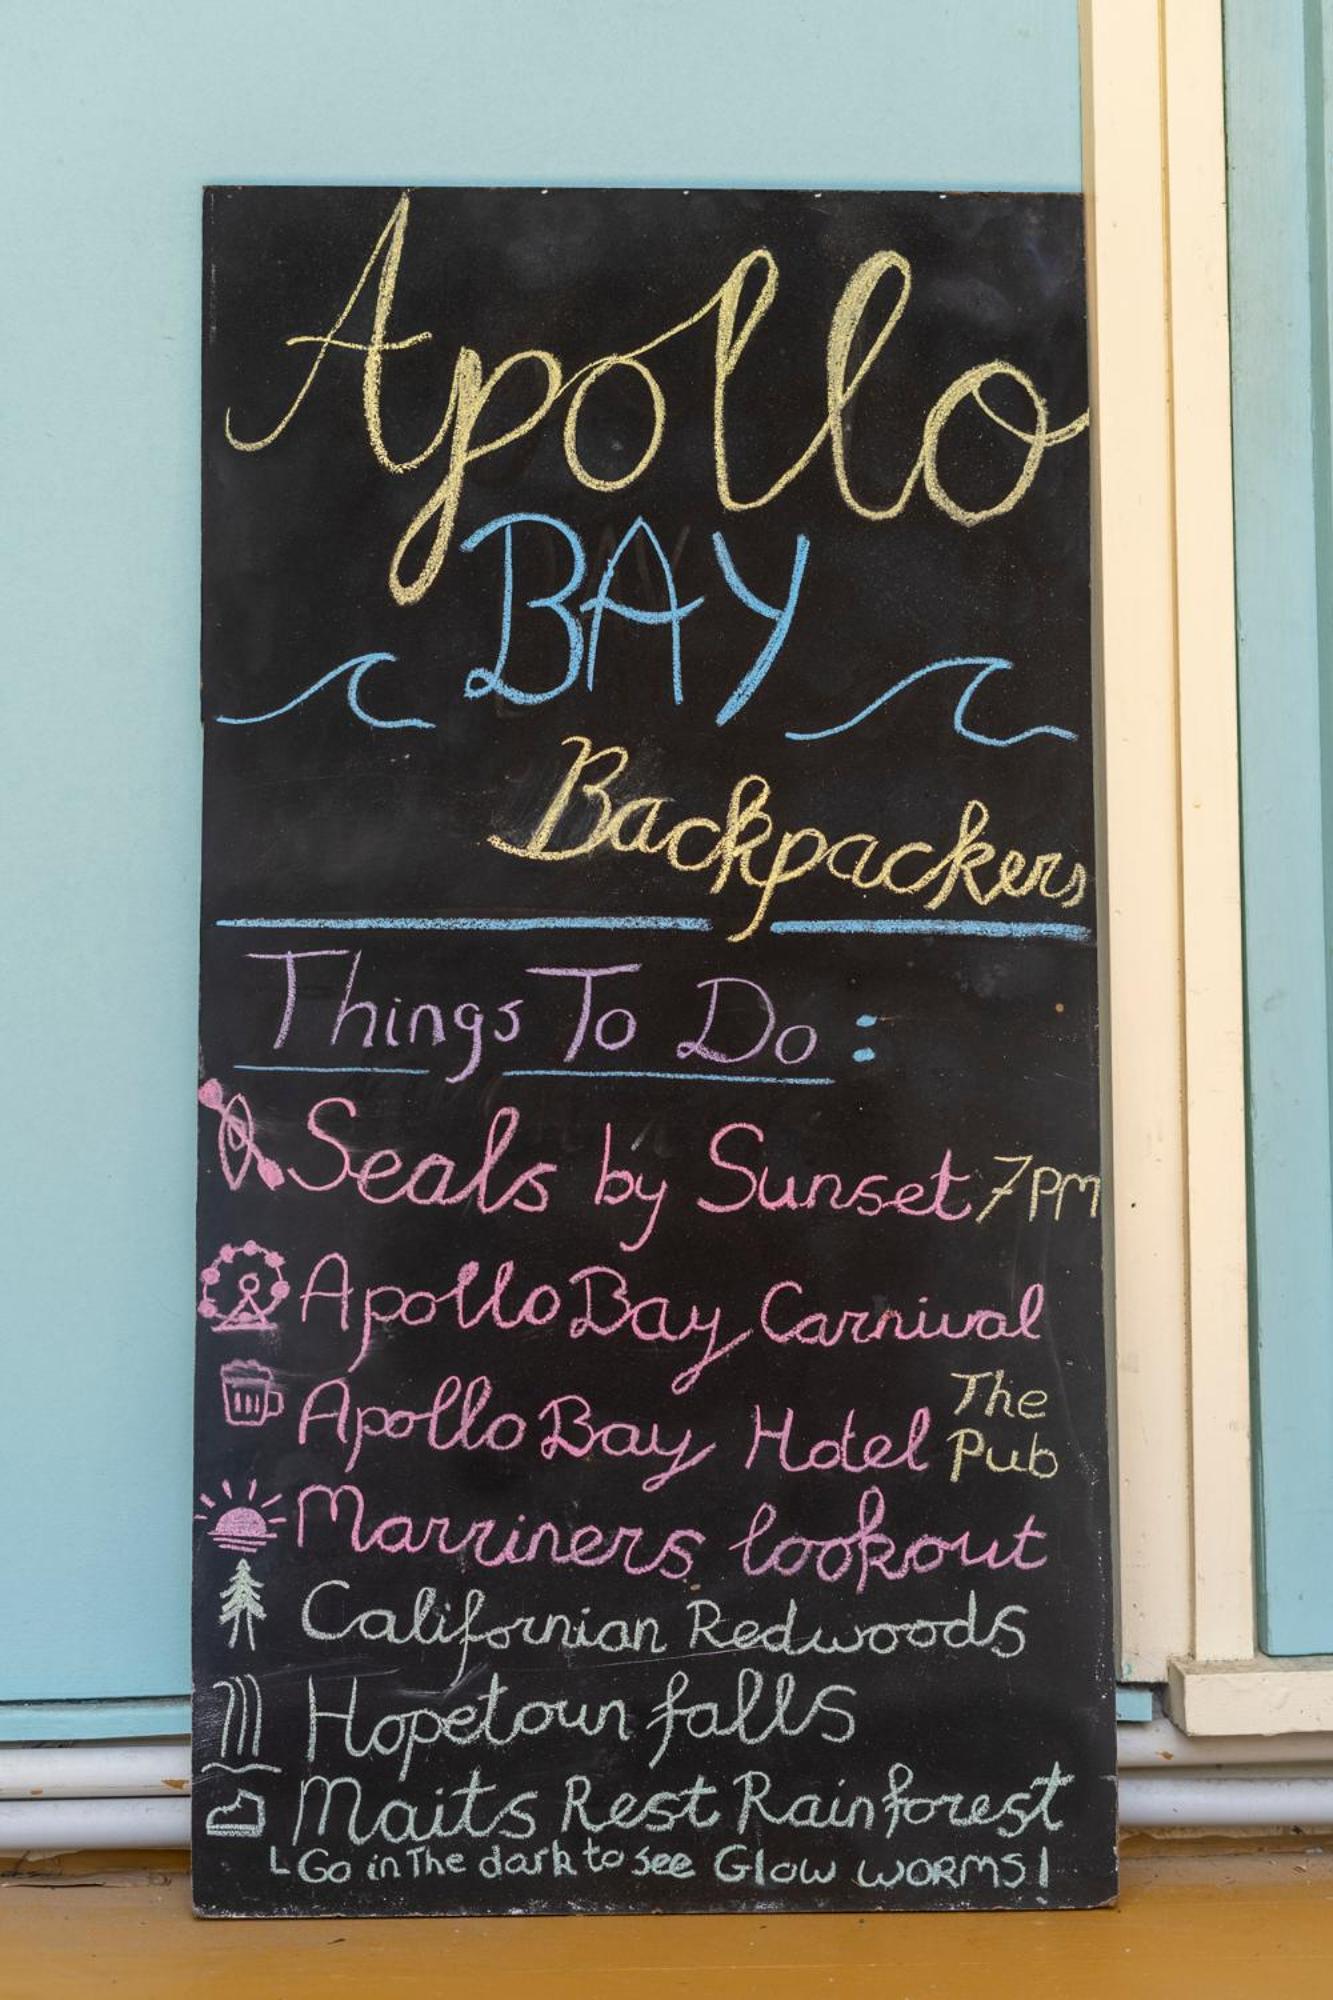 Apollo
BAY
Backpackers
Things To Do :
Seals by Sunset 7PM
Apollo Bay Carnival
Apollo Bay Hotel The Pub
Marriners lookout
Californian Redwoods
Hopetoun falls
Maits Rest Rainforest
Go in The dark to see Glow WORMS!